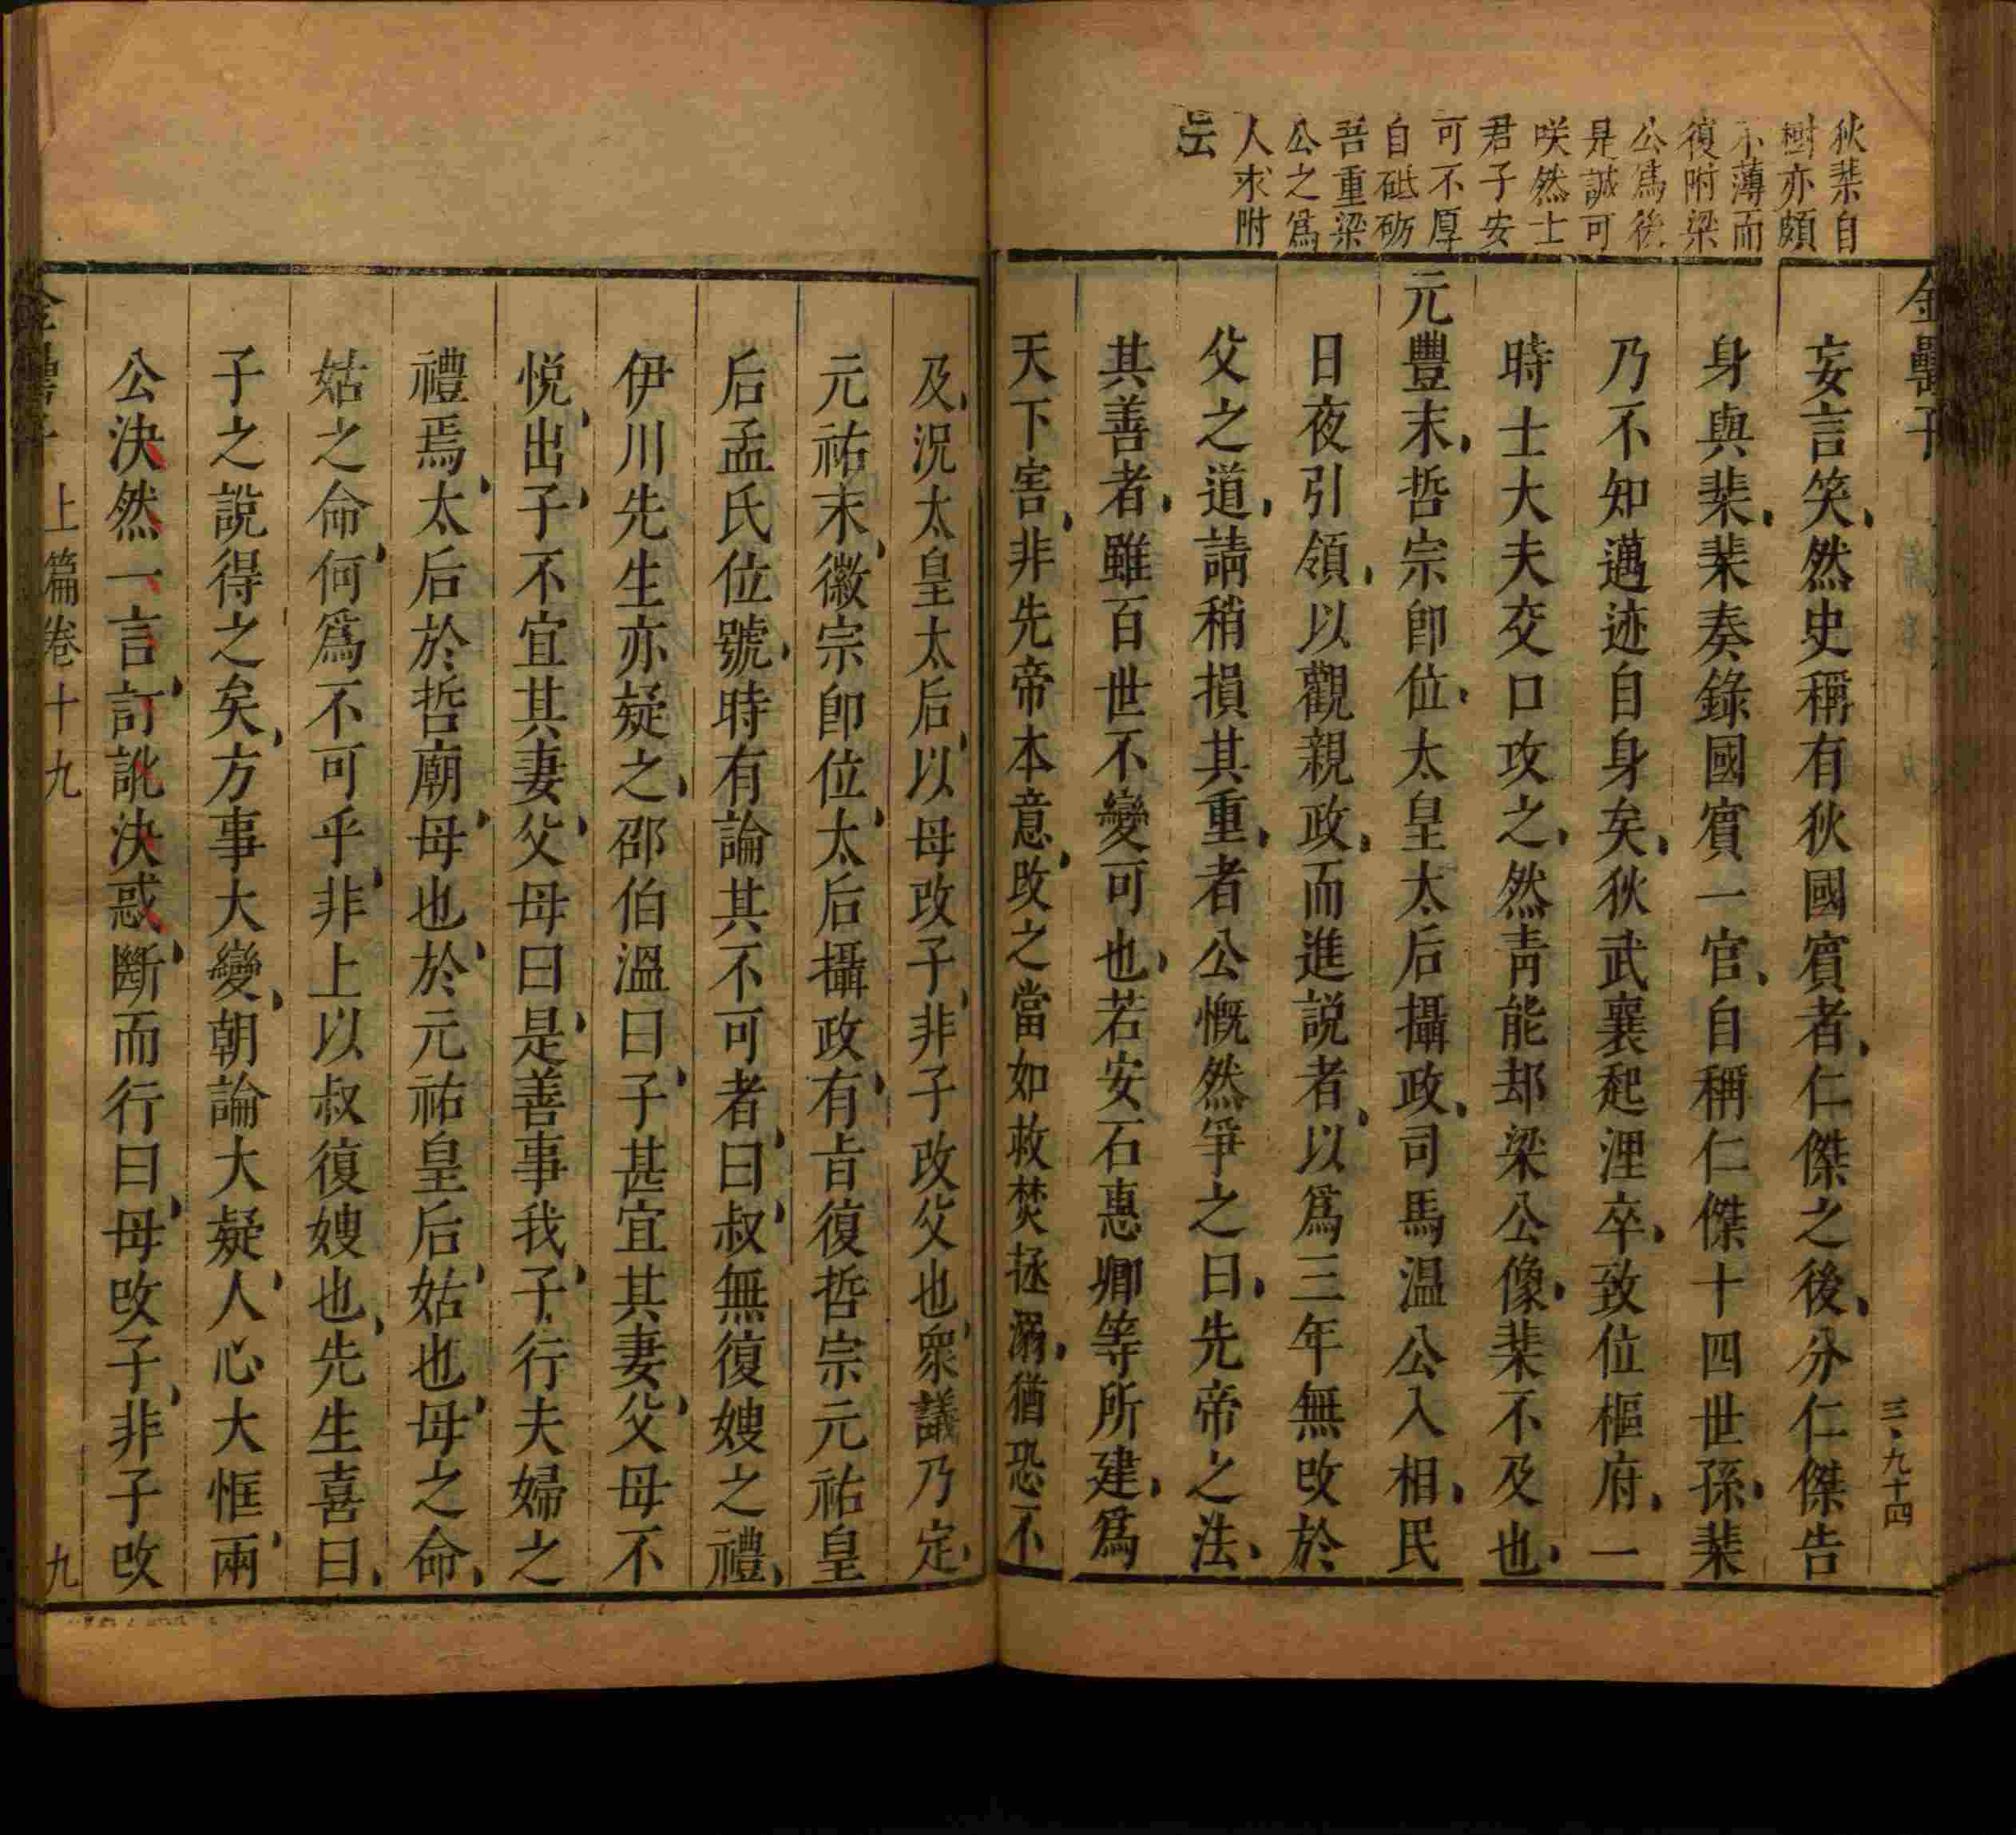 狄棐自
樹亦頗
不薄而
復附梁
公爲後
是誠可
咲然士
君子安
可不厚
自砥礪
吾重梁
公之爲
人求附
云
妄言笑然史稱有狄國賓者仁傑之後分仁傑告
身與棐棐奏錄國賓一官自稱仁傑十四世孫棐
乃不知邁迹自身矣狄武襄起涅卒致位樞府一
時士大夫交口攻之然靑能却梁公像棐不及也
元豐末哲宗卽位太皇太后攝政司馬温公入相民
日夜引領以觀親政而進説者以爲三年無改於
父之道請稍損其重者公慨然爭之曰先帝之法
其善者雖百世不變可也若安石惠卿等所建爲
天下害非先帝本意改之當如救焚拯溺猶恐不
三九十四
及況太皇太后以母改子非子改父也衆議乃定
元祐末徽宗卽位太后攝政有旨復哲宗元祐皇
后孟氏位號時有論其不可者曰叔無復嫂之禮
伊川先生亦疑之邵伯溫曰子甚宜其妻父母不
悅出子不宜其妻父母曰是善事我子行夫婦之
禮焉太后於哲廟母也於元祐皇后姑也母之命
姑之命何爲不可乎非上以叔復嫂也先生喜曰
子之說得之矣方事大變朝論大疑人心大恇兩
公決然一言訂訛決惑斷而行曰母改子非子改
上篇卷十九
九